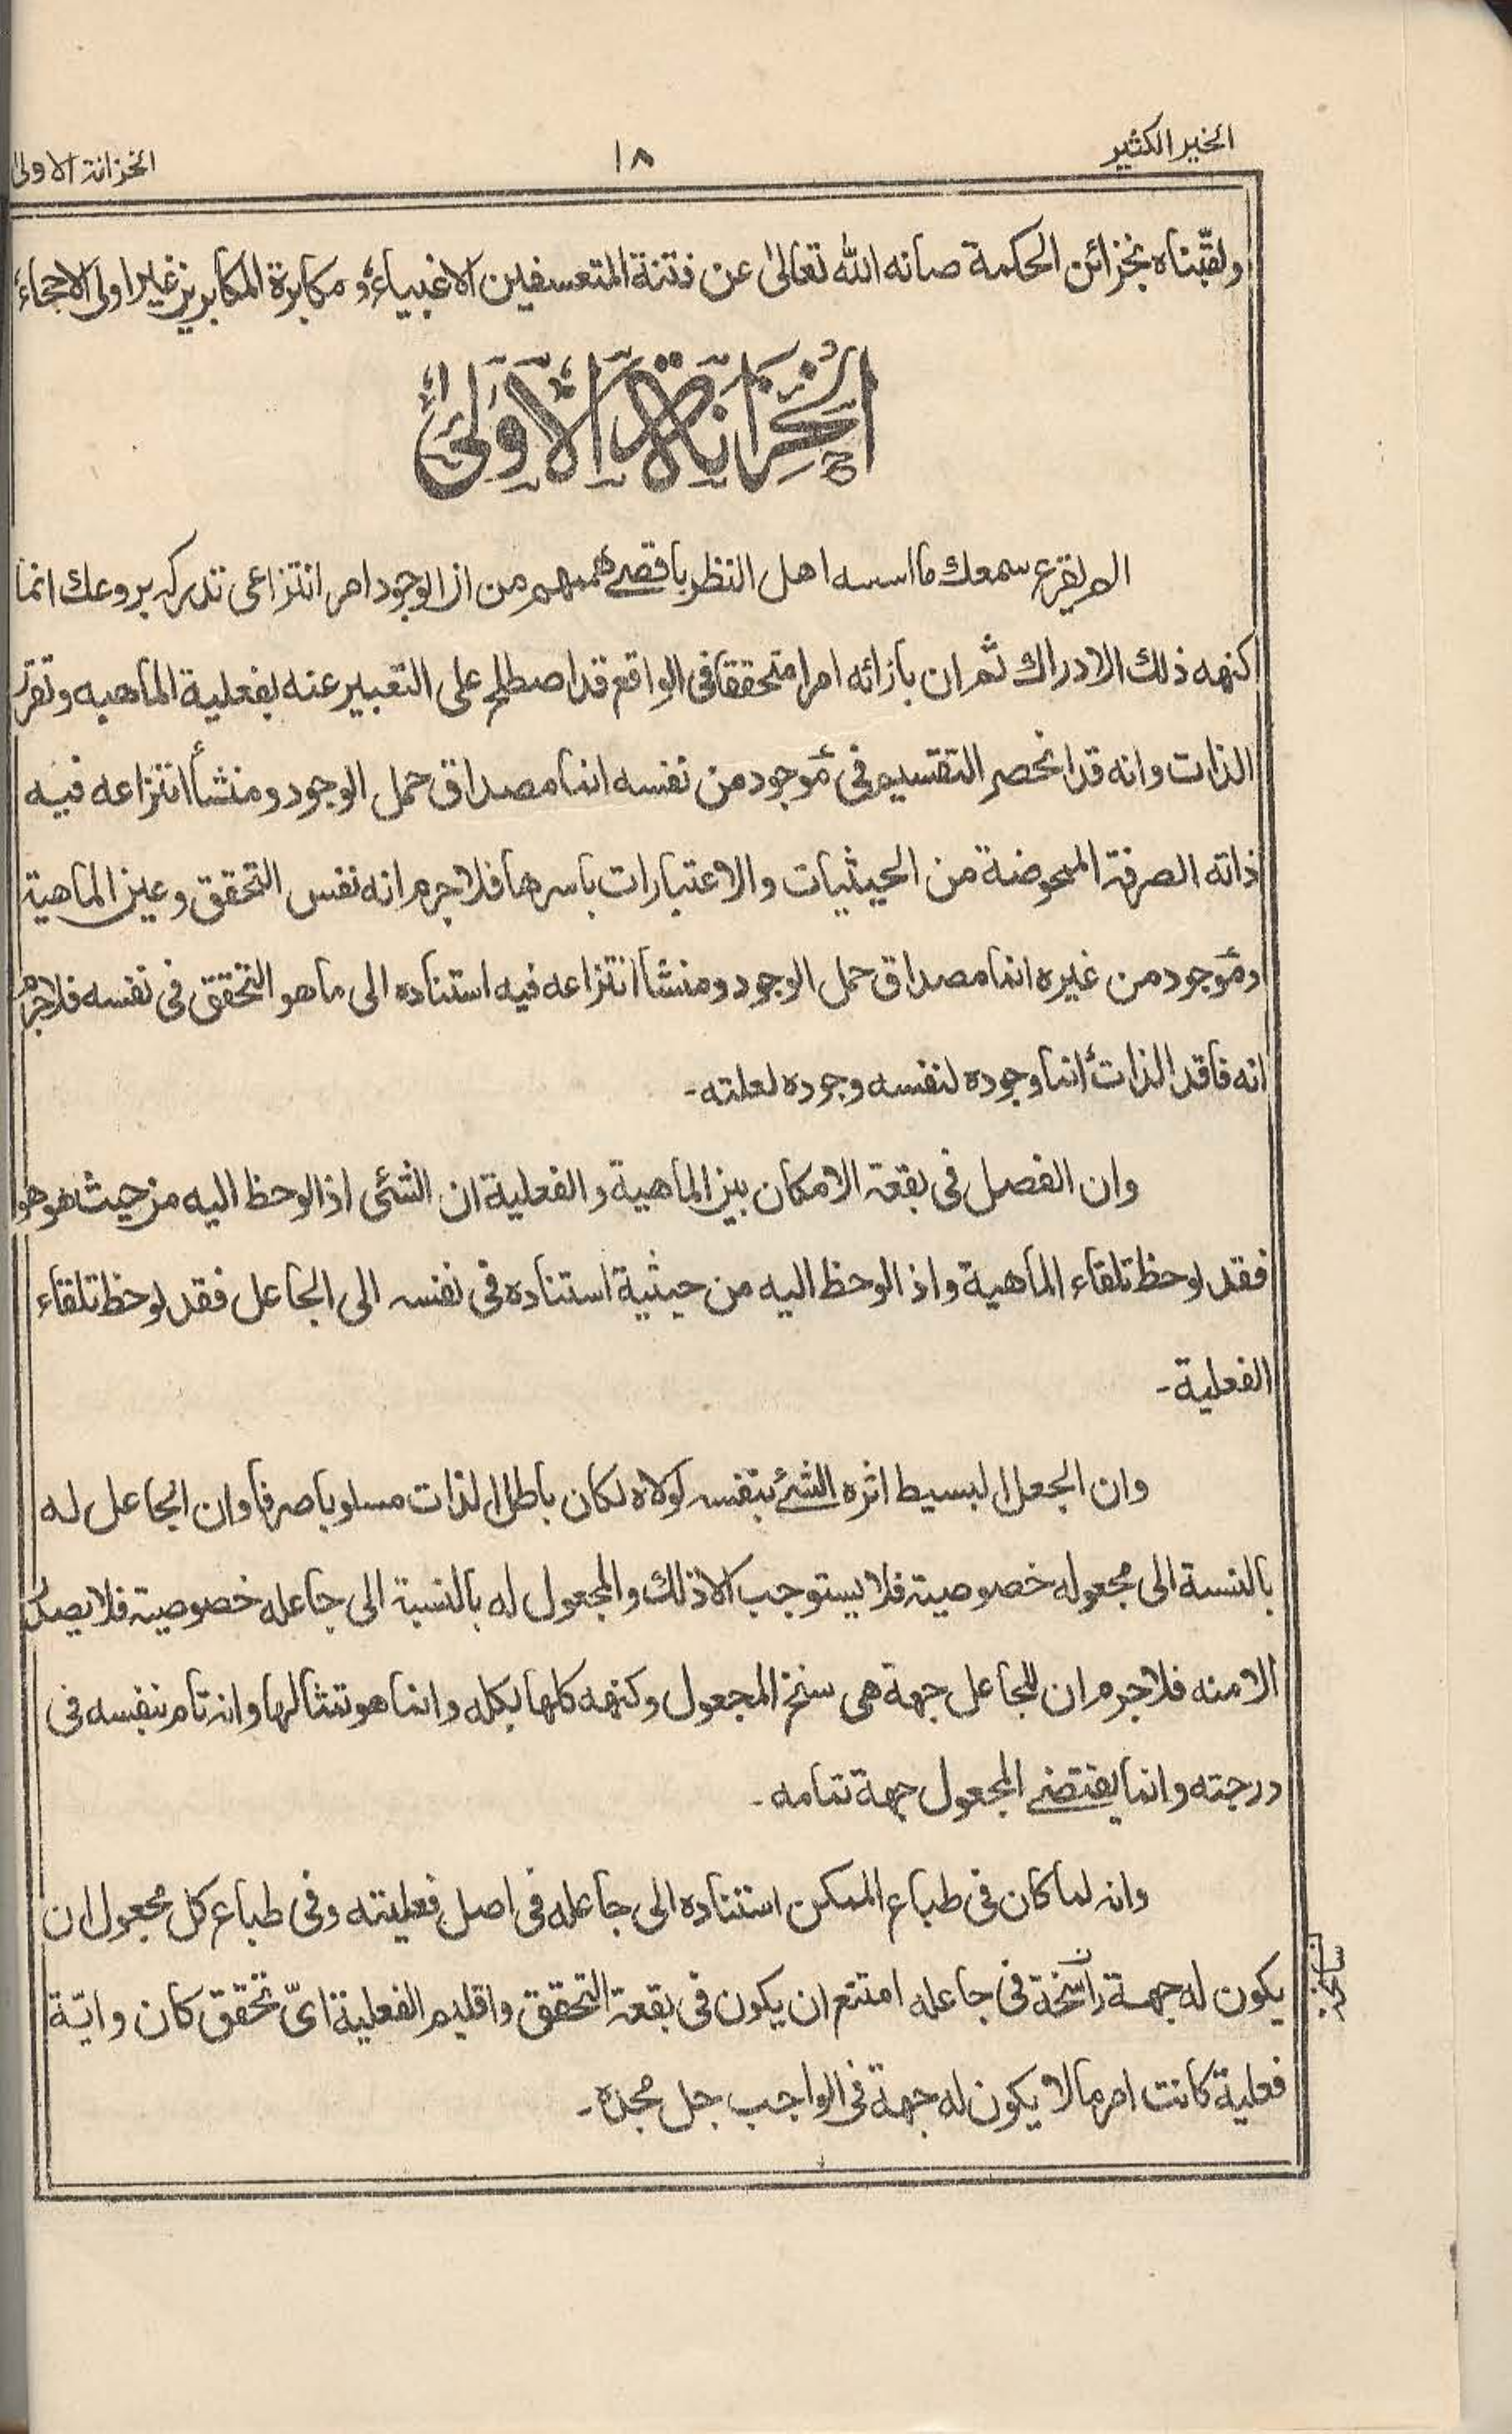 الخير الكثير
١٨
الخزانة الاولىٰ
ولقبّناه بخزائن الحكمة صانه الله تعالىٰ عن فتنة المتعسفين الاغبياء و مكابرة المكابرين غير اولى الاحجاء
اَلْخِزَانَةُ الْاُوْلىٰ
الم يقرع سمعك ما اسسه اهل النظر باقصے هممهم من ان الوجود امر انتزاعى تدركه بروعك انما
كنهه ذلك الادراك ثم ان بازائه امرا متحققا فى الواقع قد اصطلح على التعبير عنه بفعلية الماهيه وتقرّر
الذات وانه قد انحصر التقسيم فى مؤجود من نفسه انما مصداق حمل الوجود ومنشأ انتزاعه فيه
ذاته الصرفة الممحوضة من الحيثيات والاعتبارات باسرها فلاجرم انه نفس التحقق وعين الماهية
ومؤجود من غيره انما مصداق حمل الوجود ومنشأ انتزاعه فيه استناده الى ما هو التحقق فى نفسه فلاجرم
انه فاقد الذات انما وجوده لنفسه وجوده لعلته-
وان الفصل فى بقعة الامكان بين الماهية والفعلية ان الشئى اذا لوحظ اليه من حيث هو هو
فقد لوحظ تلقاء الماهية واذا لوحظ اليه من حيثية استناده فى نفسه الى الجاعل فقد لوحظ تلقاء
الفعلية-
وان الجعل البسيط اثره الشئ بنفسه لولاه لكان باطل الذات مسلوبا صرفا وان الجاعل له
بالنسبة الى مجعوله خصوصية فلا يستوجب الا ذلك والمجعول له بالنسبة الى جاعله خصوصية فلا يصدر
الا منه فلاجرم ان للجاعل جهة هى سنخ المجعول وكنهه كلها بكله وانما هو تمثالها وانه تام بنفسه فى
درجته وانما يقتضے المجعول جهة تمامه-
وانه لما كان فى طباع الممكن استناده الى جاعله فى اصل فعليته وفى طباع كل مجعول ان
يكون له جهة راسخة فى جاعله امتنع ان يكون فى بقعة التحقق واقليم الفعلية اىّ تحقق كان وايّة
فعلية كانت امر ما لا يكون له جهة فى الواجب جل مجده-